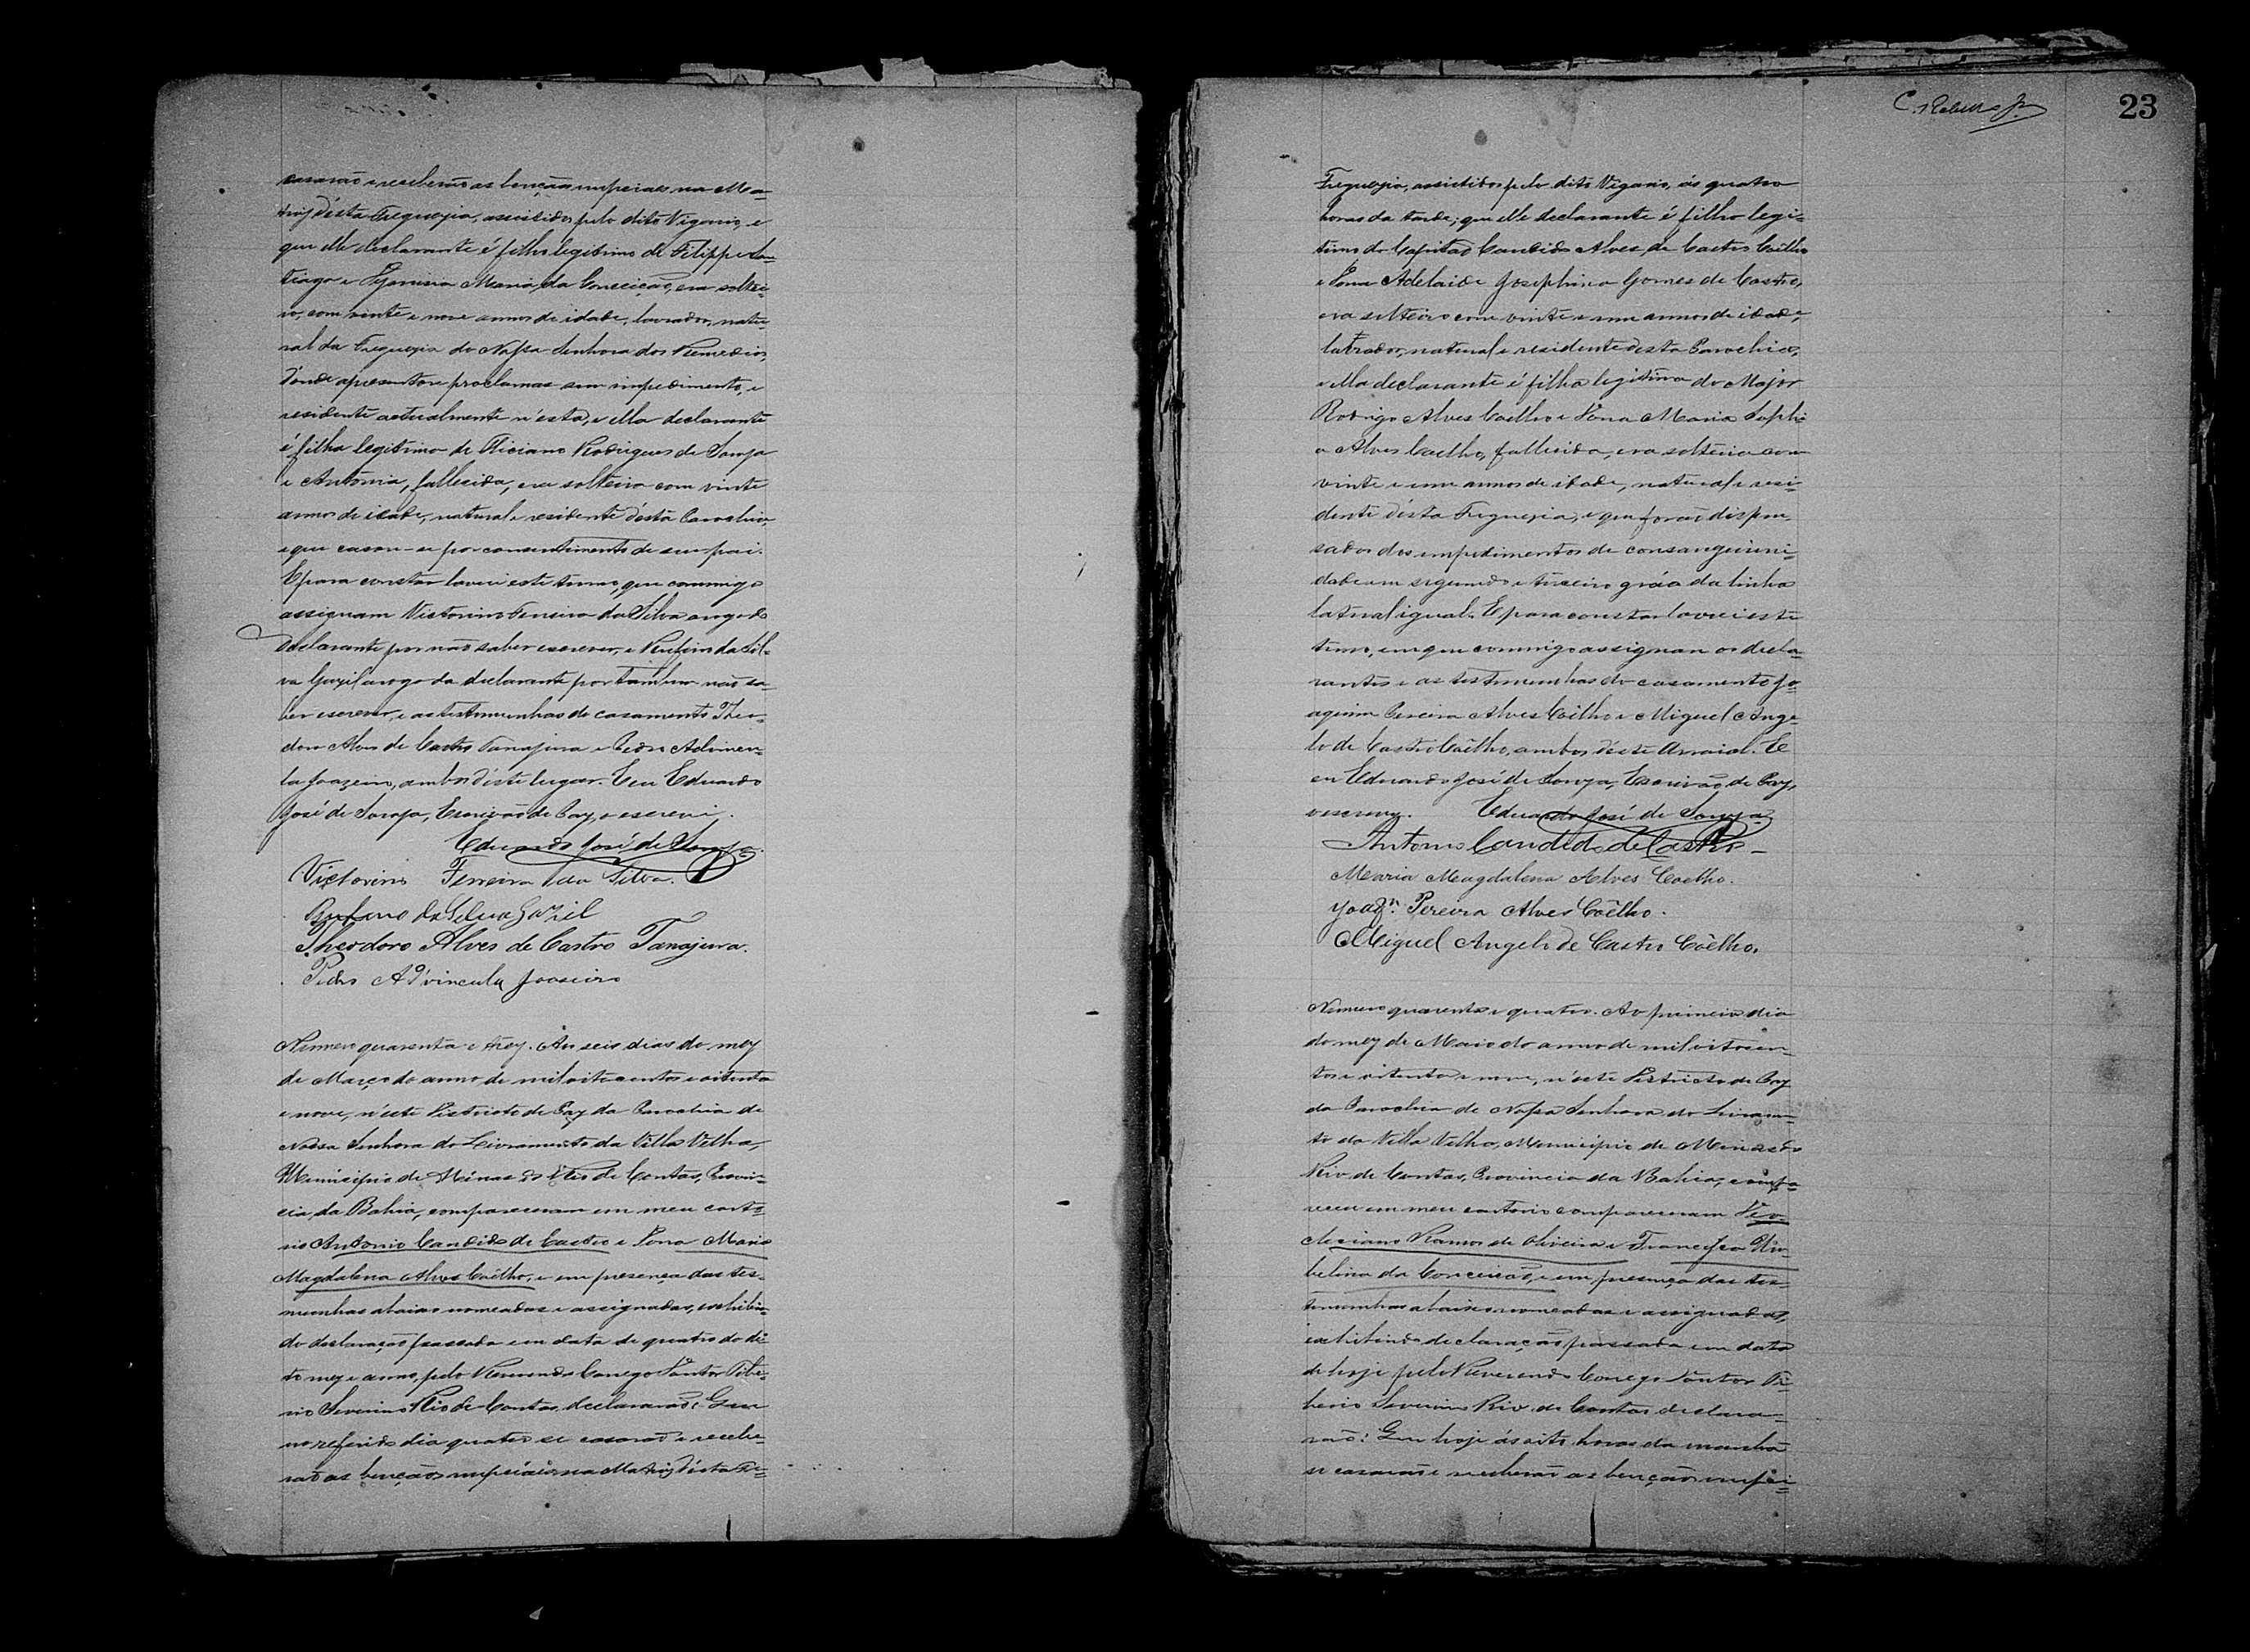 casarão e receberão as bençãos nupciaes na Ma-
triz d'esta Freguezia, assistidos pelo dito Vigario, e
que elle declarante é filho legitimo de Filippe San-
tiago e Maria da Conceição, era soltei-
ro, com vinte e nove annos de idade, lavrador, natu-
ral da Freguezia de Nossa Senhora dos Remedios,
d'onde apresentou proclamas sem impedimento, e
residente actualmente n'esta, e ella declarante
é filha legitima de Feliciano Rodrigues de Souza
e Antonia, fallecida, era solteira com vinte
annos de idade, natural e residente d'esta Parochia,
e que casou-se por consentimento de seu pai.
E para constar lavrei este termo, que commigo
assignam Victorino Ferreira da Silva arogo do
declarante por não saber escrever, e Rufino da Sil-
va Gazil arogo da declarante por tambem não sa-
ber escrever, e as testemunhas do casamento Theo-
doro Alves de Castro Tanajura e Pedro Advincu-
la Joazeiro, ambos d'este lugar. E eu Eduardo
José de Souza, Escrivão de Paz, o escrevi.
Eduardo José de Souza.
Victorino Ferreira da Silva.
Rufino da Silva Gazil
Theodoro Alves de Castro Tanajura.
Pedro Advincula Joaseiro
Numero quarenta e trez. Aos seis dias do mez
de Março do anno de mil oitocentos e oitenta
e nove, n'este Districto de Paz da Parochia de
Nossa Senhora do Livramento da Villa Velha,
Municipio de Minas do Rio de Contas, Provin-
cia da Bahia, compareceram em meu carto-
rio Antonio Candido de Castro e Dona Maria
Magdalena Alves Coêlho, e em presença das tes-
munhas abaixo nomeadas e assignadas, exhibin-
do declaração passada em data de quatro do di-
to mez e anno, pelo Reverendo Conego Doutor Tibe-
rio Severino Rio de Contas, declararão: Que
no referido dia quatro se casarão e recebe-
rão as bençãos nupciaes na Matriz d'esta Fre-
C. Rebello Jr.
23
Freguezia, assistidos pelo dito Vigario, ás quatro
horas da tarde; que elle declarante é filho legi-
timo do Capitão Candido Alves de Castro Coêlho
e Dona Adelaide Josephina Gomes de Castro,
era solteiro com vinte e um annos de idade,
lavrador, natural e residente desta Parochia,
e ella declarante é filha legitima do Major
Rodrigo Alves Coelho e Dona Maria Sophi-
a Alves Coelho, fallecida, era solteira com
vinte e um annos de idade, natural e resi-
dente d'esta Freguezia, e que forão dispen-
sados dos impedimentos de consanguini-
dade em segundo e terceiro gráo da linha
lateral igual. E para constar lavrei este
termo, em que commigo assignam os decla-
rantes e as testemunhas do casamento Jo-
aquim Pereira Alves Coêlho e Miguel Ange-
lo de Castro Coêlho, ambos d'este Arraial. E
eu Eduardo José de Souza, Escrivão de Paz,
o escrevy. Eduardo José de Souza.
Antonio Candido de Castro
Maria Magdalena Alves Coelho.
Joaqm. Pereira Alves Coêlho.
Miguel Angelo de Castro Coêlho.
Numero quarenta e quatro. Ao primeiro dia
do mez de Maio do anno de mil oitocen-
tos e oitenta e nove, n'este Districto de Paz
da Parochia de Nossa Senhora do Livramen-
to da Villa Velha, Municipio de Minas do
Rio de Contas, Provincia da Bahia, compa-
receu em meu cartorio compareceram
Ramos de Oliveira e Francisca Um-
belina da Conceição, e em presença das tes-
temunhas abaixo nomeadas e assignadas,
exhibindo declaração passada em data
de hoje pelo Reverendo Conego Doutor Ti-
berio Severino Rio de Contas declara-
rão: Que hoje ás oito horas da manhã
se casarão e receberão as bençãos nupci-